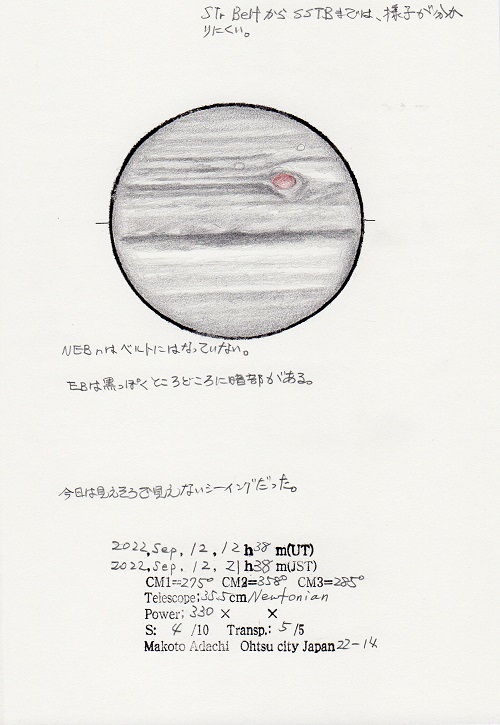 STr Beltから SSTBまでは、様子が分か
りにくい。
NEBnはベルトにはなっていない。
EBは黒っぽくところどころに暗部がある。
今日は見えそうで見えないシーイングだった。
2022, Sep, 12, 12 h 38 m(UT)
2022, Sep, 12, 21 h 38 m(JST)
CM1=275° CM2=358° CM3=285°
Telescope; 35.5cm Newtonian
Power; 330 × ×
S: 4 /10 Transp.: 5 /5
Makoto Adachi Ohtsu city Japan 22-14